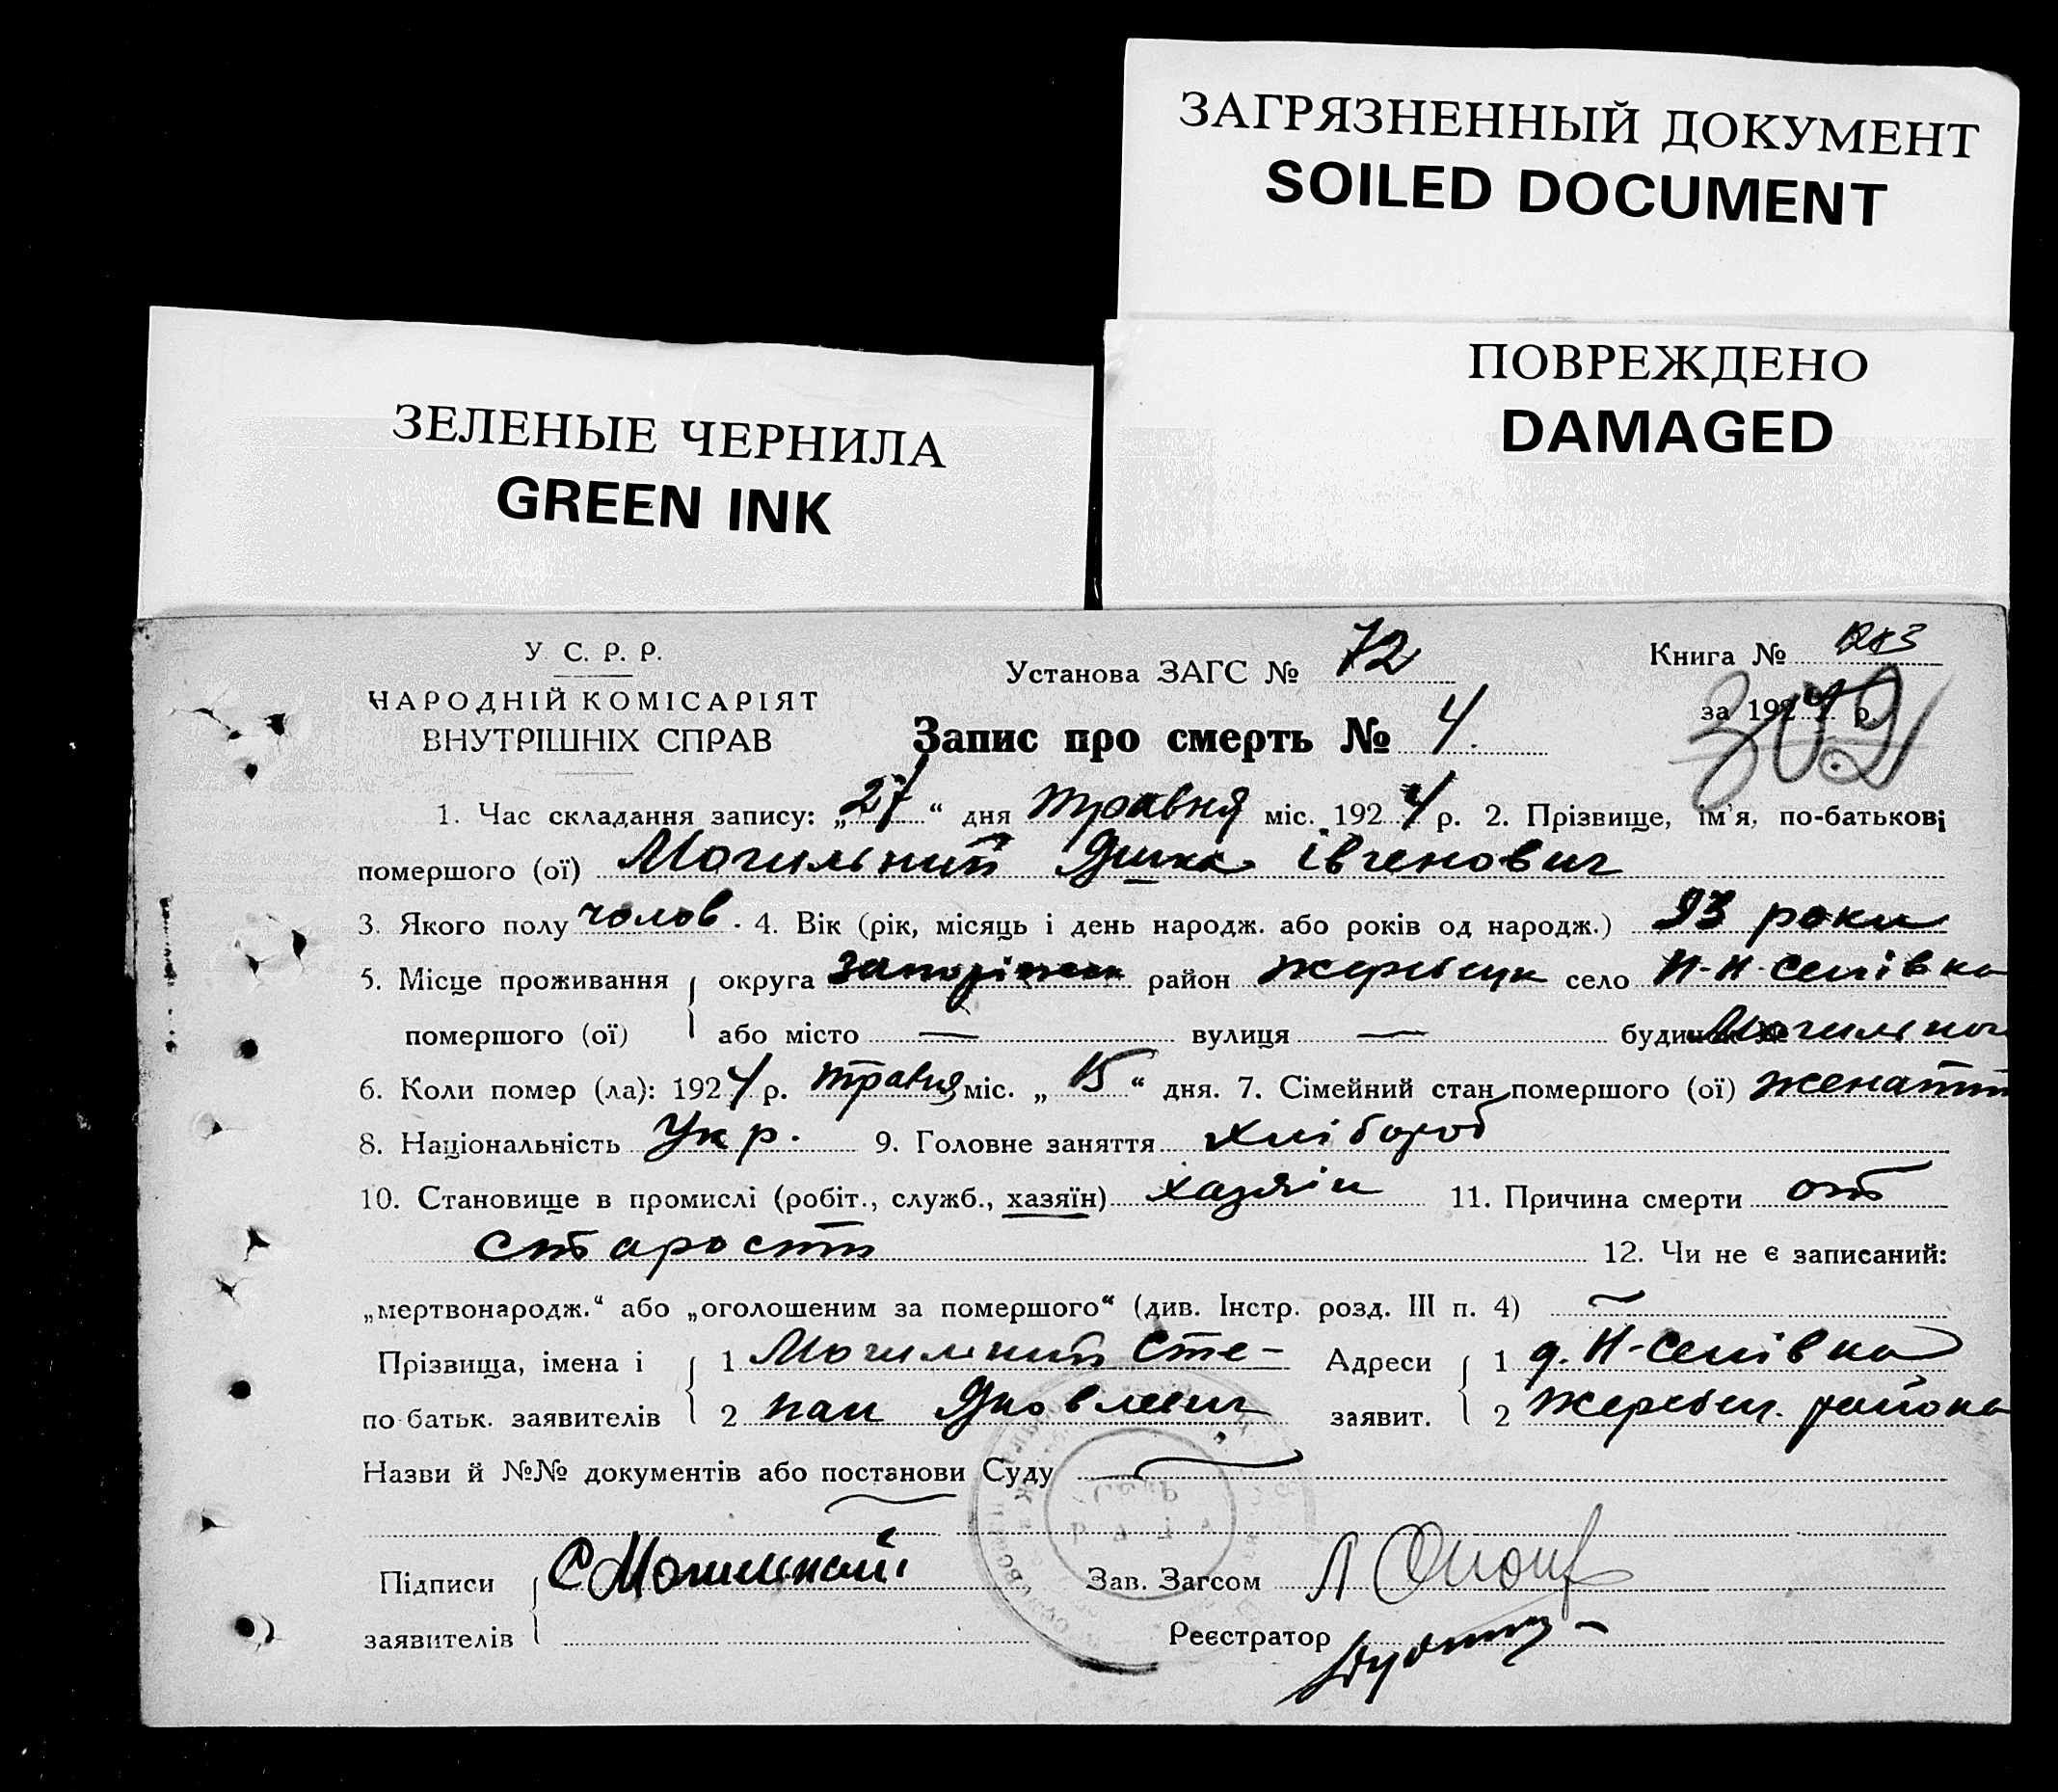 ЗАГРЯЗНЕННЫЙ ДОКУМЕНТ
SOILED DOCUMENT
ПОВРЕЖДЕНО
DAMAGED
ЗЕЛЕНЫЕ ЧЕРНИЛА
GREEN INK
У. С. Р. Р.
НАРОДНІЙ КОМІСАРІЯТ
ВНУТРІШНІХ СПРАВ
Установа ЗАГС № 72
Книга №
за 192 р.
Запис про смерть № 4.
1. Час складання запису: „27“ дня травня міс. 1924 р. 2. Прізвище, ім'я, по-батькові
помершого (ої) Могильний івгенович
3. Якого полу чолов. 4. Вік (рік, місяць і день народж. або років од народж.) 93 роки
5. Місце проживання округа район село
помершого (ої) або місто — вулиця — будинок №
6. Коли помер (ла): 1924 р. травня міс. „15“ дня. 7. Сімейний стан помершого (ої) женатий
8. Національність Укр. 9. Головне заняття хлібороб
10. Становище в промислі (робіт., служб., хазяїн) хазяін 11. Причина смерти от
старости 12. Чи не є записаний:
„мертвонародж.“ або „оголошеним за помершого“ (див. Інстр. розд. III п. 4) —
Прізвища, імена і 1 Могильний Сте- Адреси 1
по батьк. заявителів 2 пан Яковлевич заявит. 2 района
Назви й №№ документів або постанови Суду
Підписи С Могильний Зав. Загсом
заявителів Реєстратор